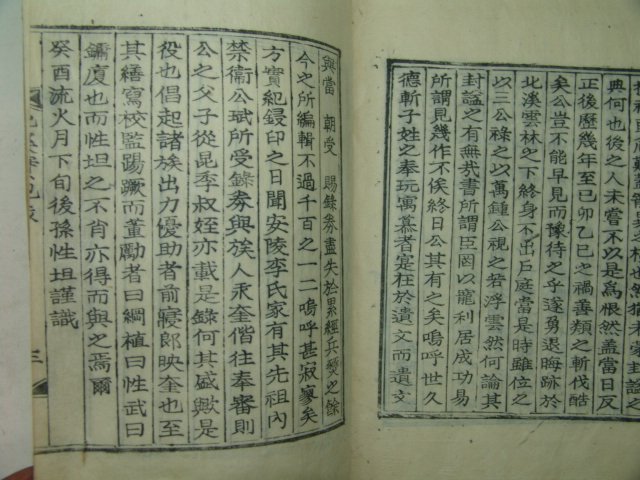 典何也彼之人未嘗不以是爲恨然盖當日反
正後歷幾年至己卯乙巳之禍善類之斬伐酷
矣公豈不能早見而豫待之乎遂勇退晦跡於
北溪雲林之下終身不出戶庭當是時雖位之
以三公祿之以萬鍾公視之若浮雲然何論其
封謚之有無㦲書所謂臣罔以寵利居成功易
所謂見幾作不俟終日公其有之矣嗚呼世久
德斬子姓之奉玩寓慕者寔在於遺文而遺文
與當朝受賜錄券盡失於累經兵燹之餘
今之所編輯不過千百之一二嗚呼甚寂寥矣
方實紀鋟印之日聞安陵李氏家有其先祖內
禁衛公珷所受錄券與族人永奎偕往奉審則
公之父子從昆季叔姪亦載是錄何其盛歟是
役也倡起諸族出力優助者前寢郞映奎也至
其繕寫校監踢蹶而董勵者曰綱植曰性武曰
鏞廈也而性坦之不肖亦得而與之焉爾
癸酉流火月下旬後孫性坦謹識
三